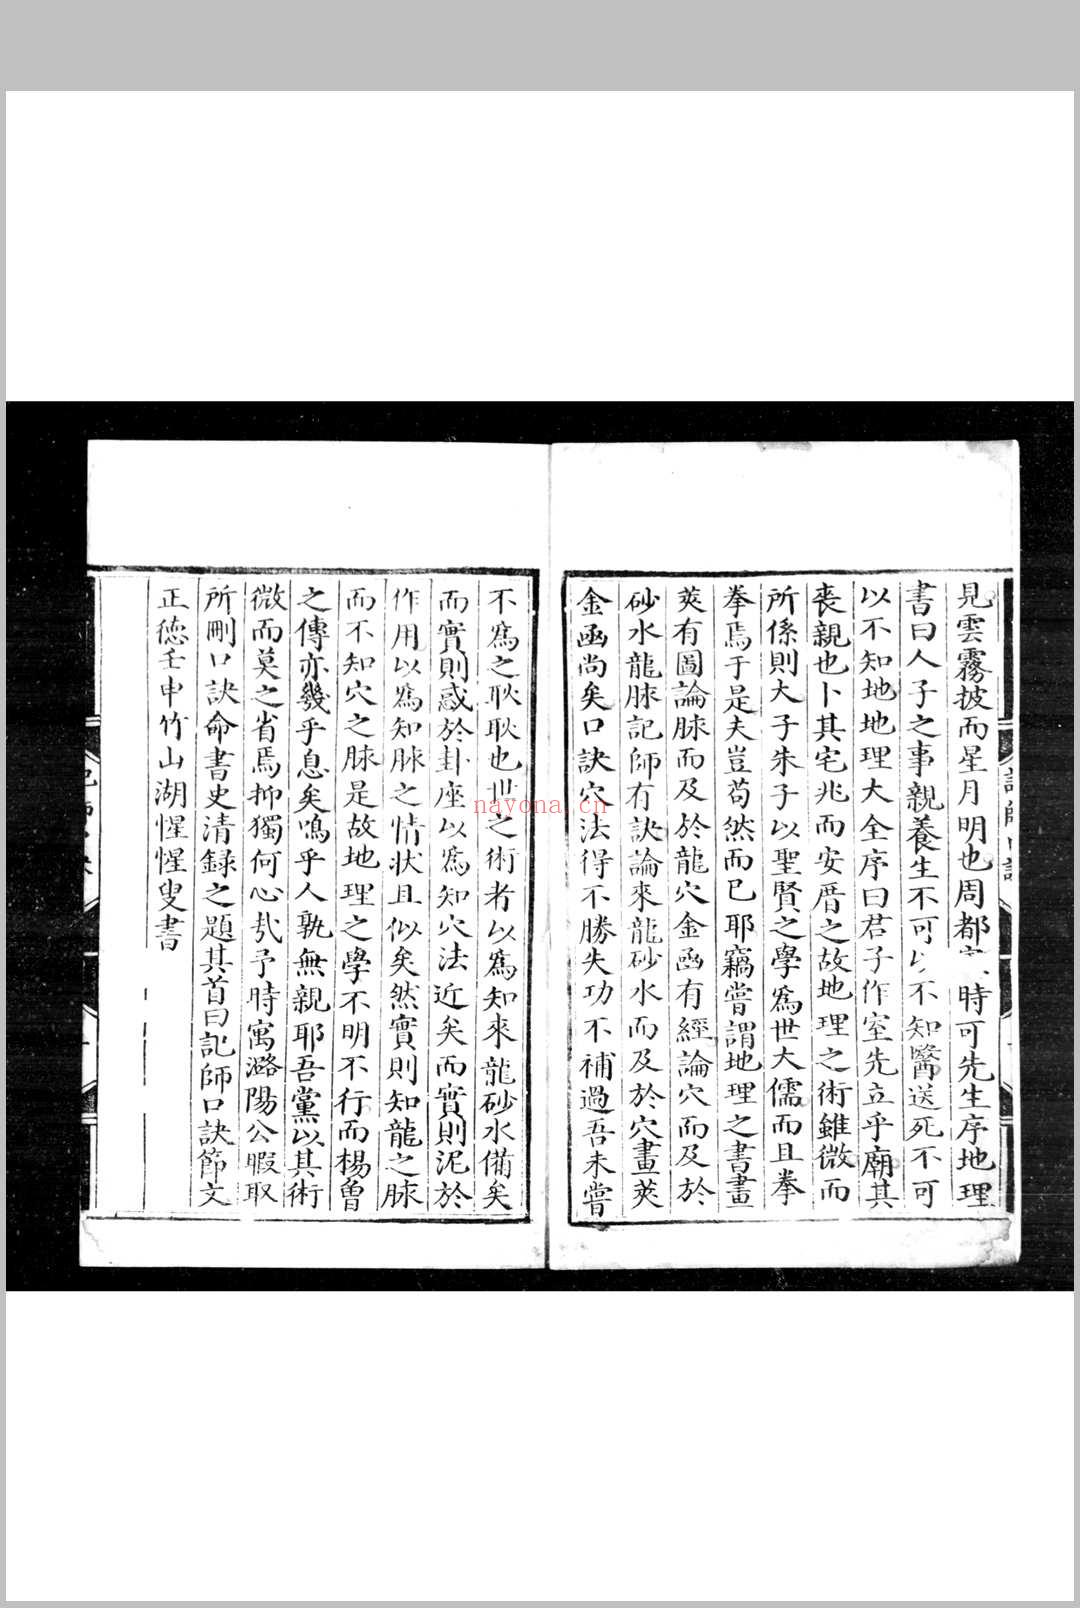 見雲霧披而星月明也周都時可先生序地理
書曰人子之事親養生不可以不知醫送死不可
以不知地地理大全序曰君子作室先立乎廟其
喪親也卜其宅兆而安厝之故地理之術雖微而
所係則大子朱子以聖賢之學爲世大儒而且拳
拳焉于是夫豈苟然而已耶竊嘗謂地理之書畫
莢有圖論脉而及於龍穴金函有經論穴而及於
砂水龍脉記師有訣論來龍砂水而及於穴畫莢
金函尚矣口訣穴法得不勝失功不補過吾未嘗
不爲之耿耿也世之術者以爲知來龍砂水備矣
而實則惑於卦座以爲知穴法近矣而實則泥於
作用以爲知脉之情状且似矣然實則知龍之脉
而不知穴之脉是故地理之學不明不行而楊曾
之傳亦幾乎息矣嗚乎人孰無親耶吾黨以其術
微而莫之省焉抑獨何心㢤予時寓潞陽公暇取
所刪口訣命書史清録之題其首曰記師口訣節文
正德壬申竹山湖惺惺叟書
記師口訣
nayona.cn